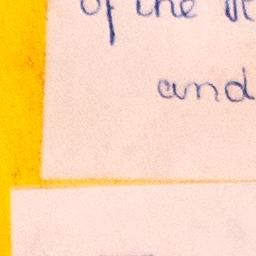 of the
and